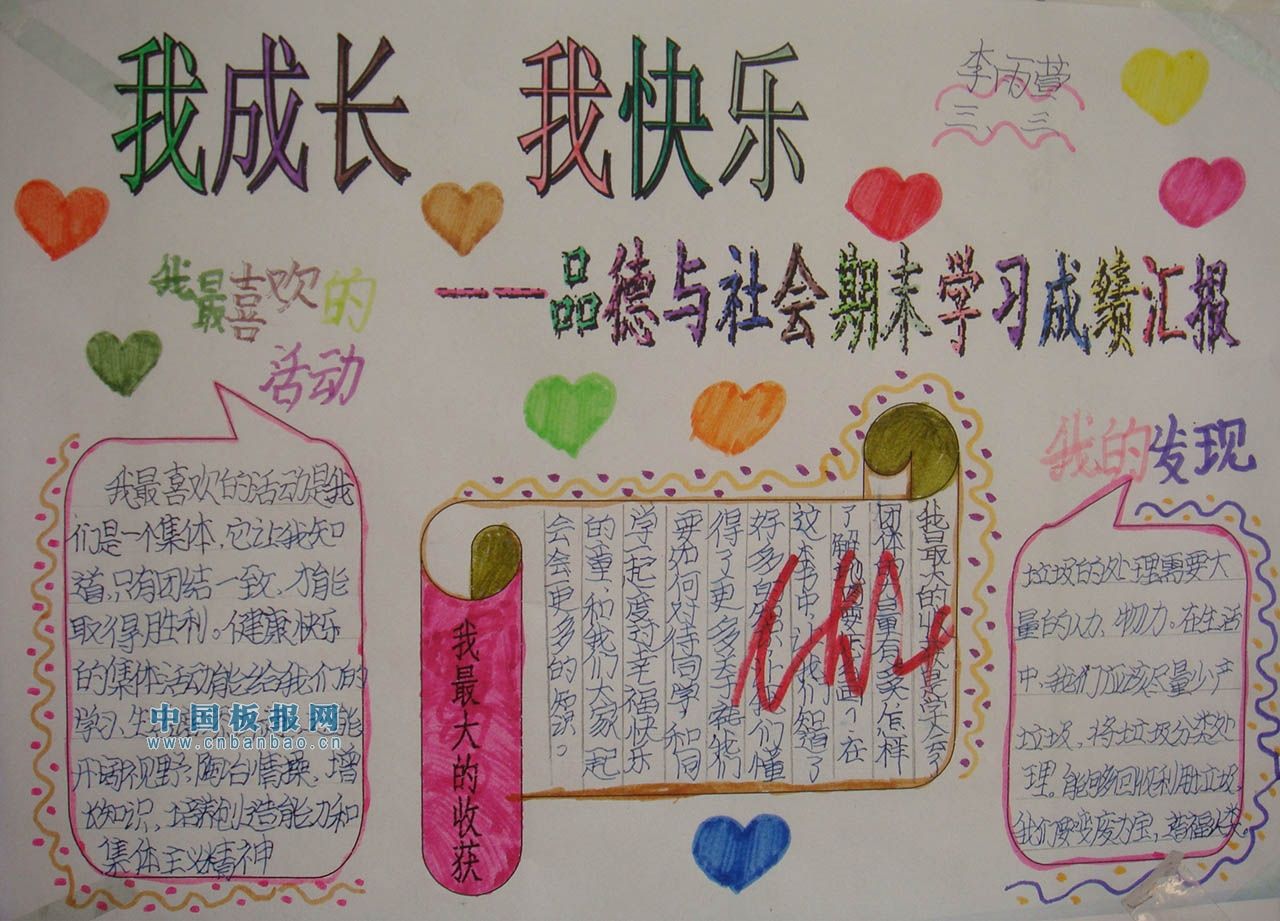 我成长 我快乐
李雨萱
三、三
——品德与社会期末学习成绩汇报
我最喜欢的
活动
我最喜欢的活动是我
们是一个集体，它让我知
道，只有团结一致，才能
取得胜利。健康快乐
的集体活动能给我们的
学习、生
开阔视野，陶冶情操，增
长知识，培养创造能力和
集体主义精神
中国板报网
www.cnbanbao.cn
我最大的收获
我最大的收获是学会了
团体的力量有多怎样
了解
这本书中，让我们知道了
好多的知识，让我们懂
得了更多关于我们
要如何对待同学和同
学一起度过幸福快乐
的童，和我们大家一起
会会更多的知识。
我的发现
垃圾的处理需要大
量的人力、物力。在生活
中，我们应该尽量少产
垃圾，将垃圾分类处
理。能够回收利用垃圾，
我们要变废为宝，造福人类。